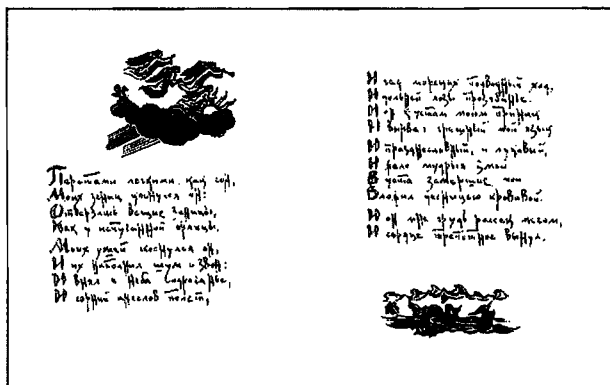 Перстами легкими, как сон,
Моих зениц коснулся он:
Отверзлись вещие зеницы,
Как у испуганной орлицы.
Моих ушей коснулся он,
И их наполнил шум и звон:
И внял я неба содроганье,
И горний ангелов полет,
И гад морских подводный ход,
И дольней лозы прозябанье.
И он к устам моим приник
И вырвал грешный мой язык
И празднословный, и лукавый,
И жало мудрыя змеи
В уста замершие мои
Вложил десницею кровавой.
И он мне грудь рассек мечом,
И сердце трепетное вынул.